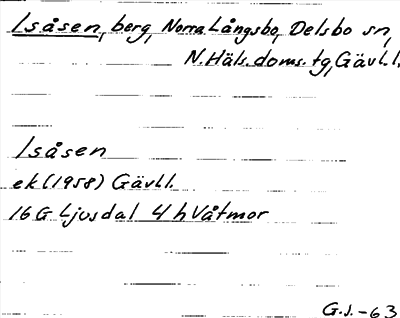 Isåsen, berg, Norra Långsbo, Delsbo sn,
N. Häls. doms. tg, Gävl. l.
Isåsen
ek (1958) Gävll.
16 G Ljusdal 4 h Våtmor
G.J. -63